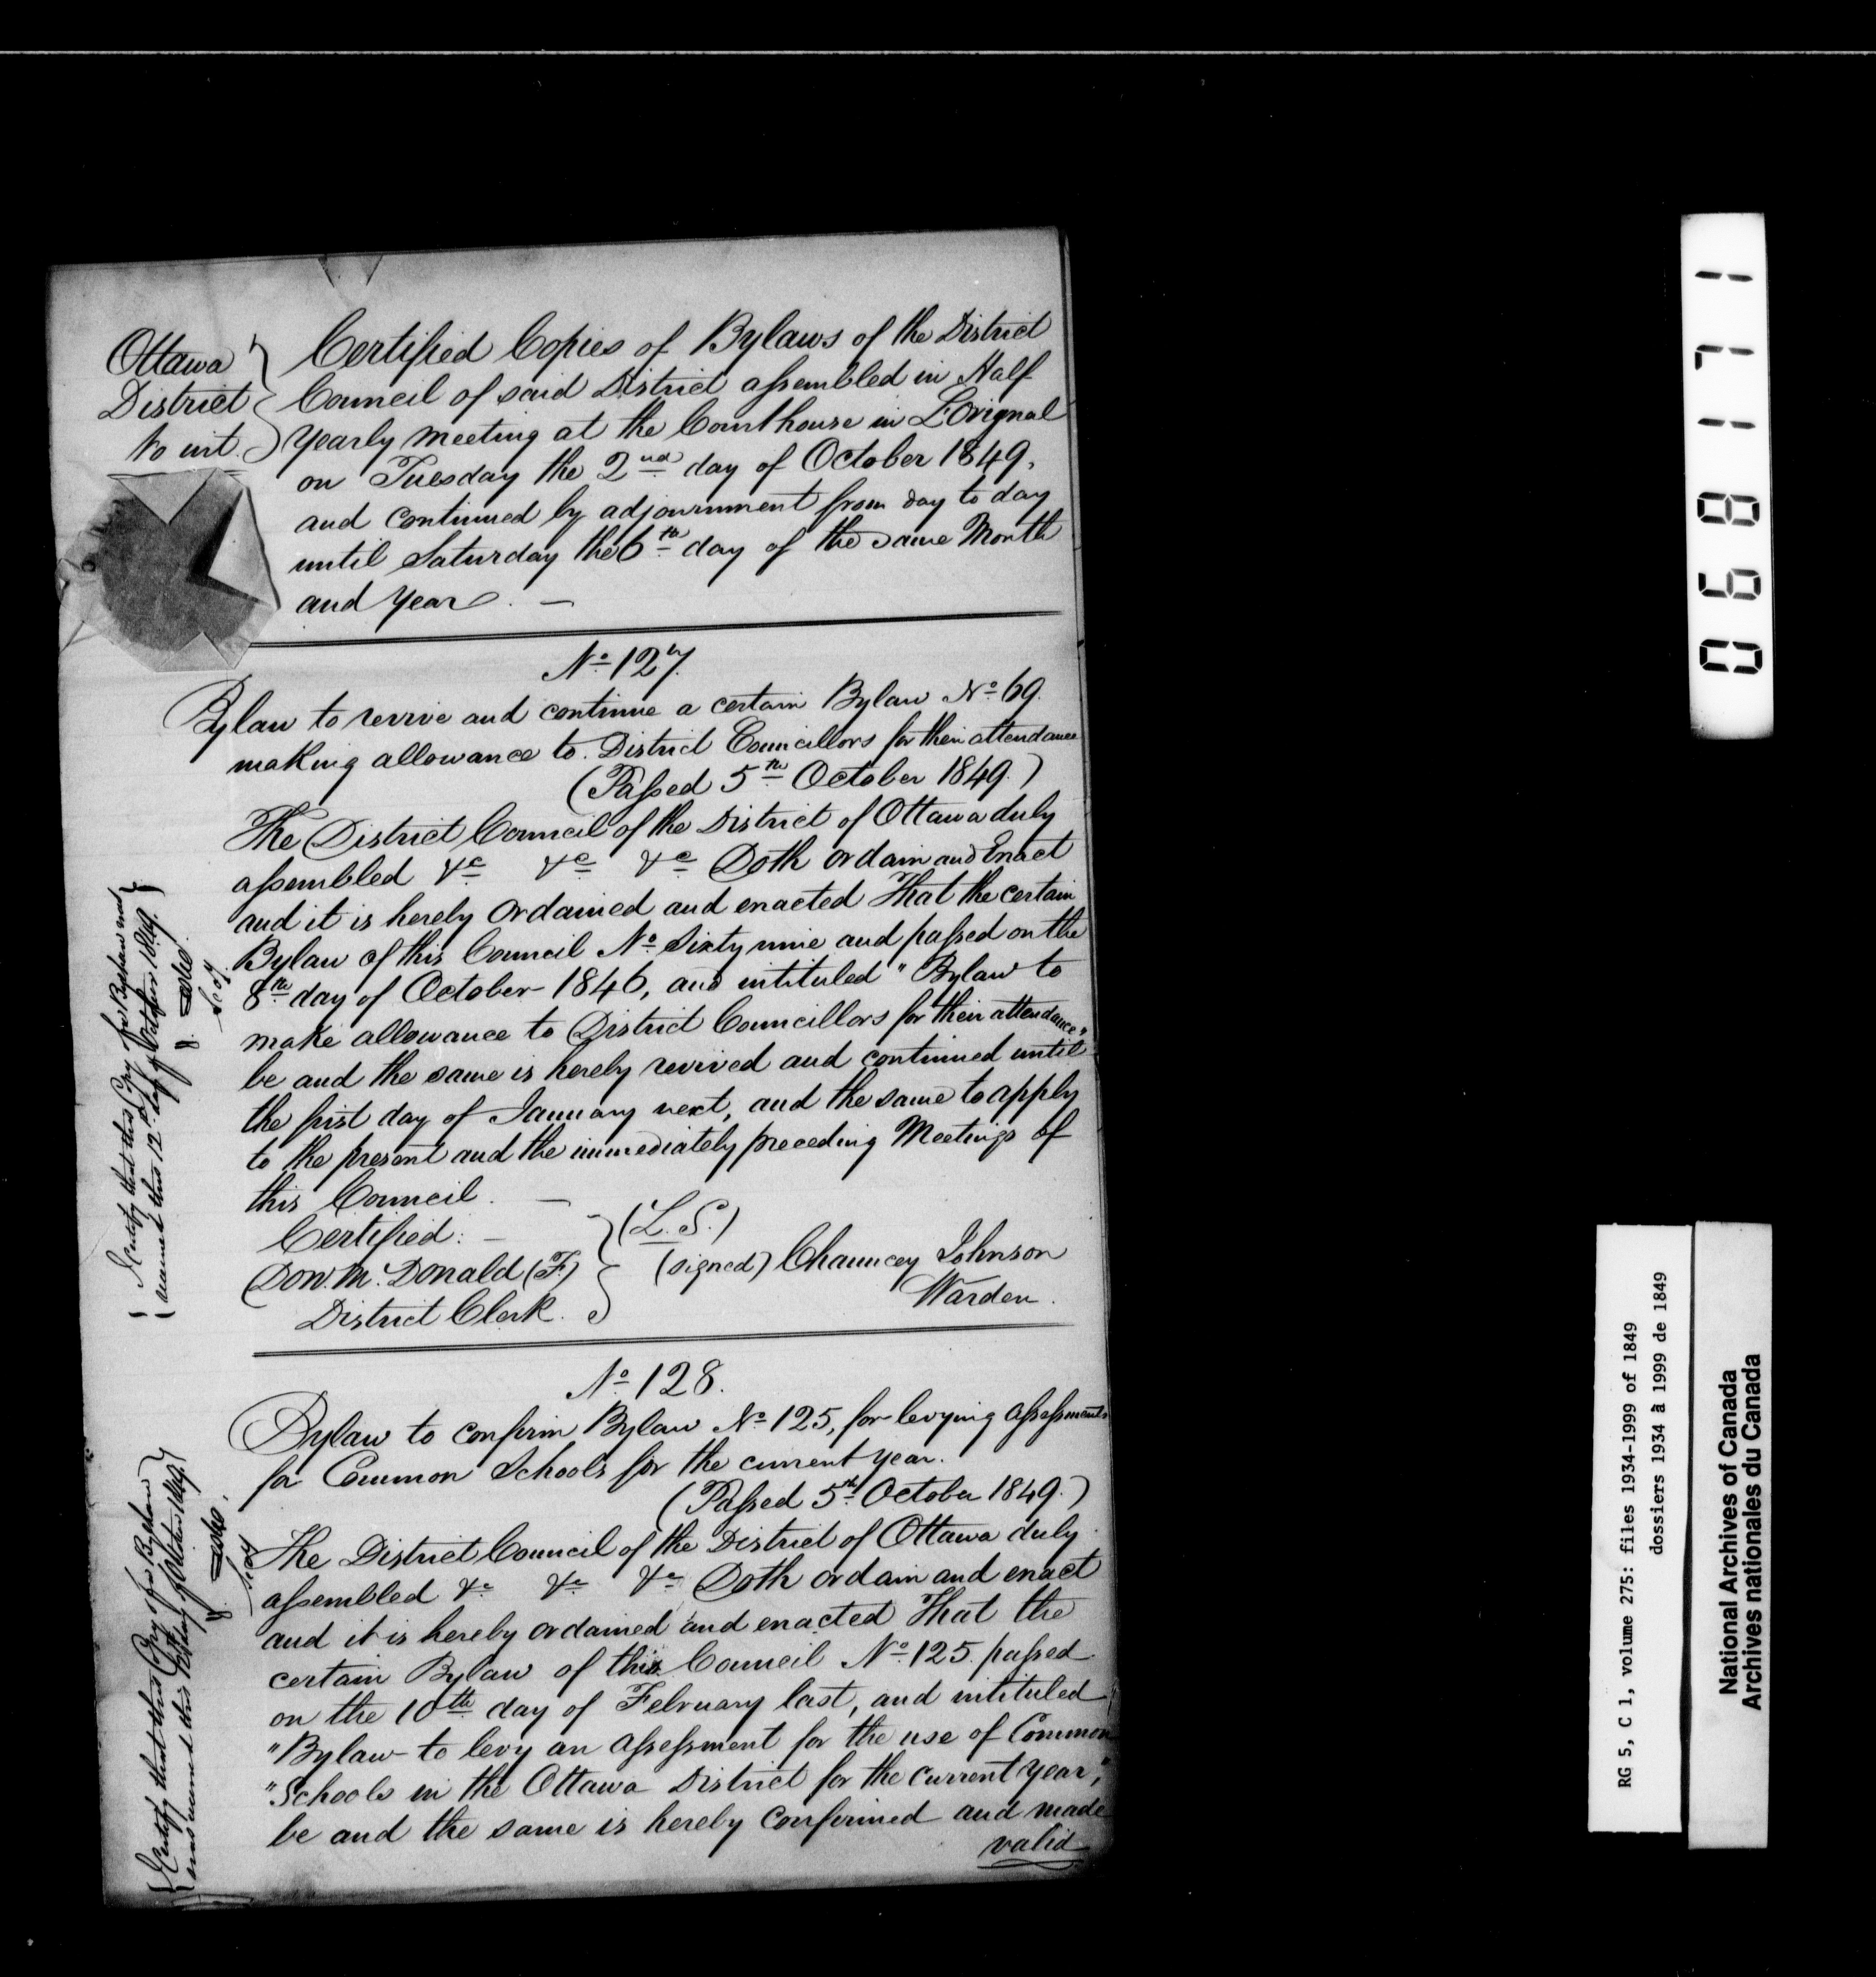 Ottawa
District
to wit.
Certified Copies of Bylaws of the District
Council of said District assembled in Half
Yearly Meeting at the Courthouse in L'Orignal
on Tuesday the 2nd day of October 1849,
and continued by adjournment from day to day
until Saturday the 6th day of the same Month
and Year. —
No. 127.
Bylaw to revive and continue a certain Bylaw No. 69.
making allowance to District Councillors for their attendance
(Passed 5th October 1849.)
The District Council of the District of Ottawa duly
assembled &c &c &c Doth ordain and Enact
and it is hereby Ordained and enacted That the certain
Bylaw of this Council No. Sixty nine and passed on the
8th day of October 1846, and intituled "Bylaw to
make allowance to District Councillors for their attendance"
be and the same is hereby revived and continued until
the first day of January next, and the same to apply
to the present and the immediately preceding Meetings of
this Council. —
Certified: —
Don. M. Donald (F)
District Clerk.
(L.S.)
(signed) Chauncey Johnson
Warden.
I certify that this Copy of a Bylaw was
received this 12th day of October 1849.
No. 128.
Bylaw to confirm Bylaw No. 125, for levying assessments
for Common Schools for the current year.
(Passed 5th October 1849.)
The District Council of the District of Ottawa duly
assembled &c &c &c Doth ordain and enact
and it is hereby ordained and enacted That the
certain Bylaw of this Council No. 125. passed
on the 10th day of February last, and intituled
"Bylaw to levy an assessment for the use of Common
"Schools in the Ottawa District for the current year,"
be and the same is hereby confirmed and made
valid
I certify that this Copy of a Bylaw
was received this 12th day of October 1849
068171
RG 5, C 1, volume 275: files 1934-1999 of 1849
dossiers 1934 à 1999 de 1849
National Archives of Canada
Archives nationales du Canada